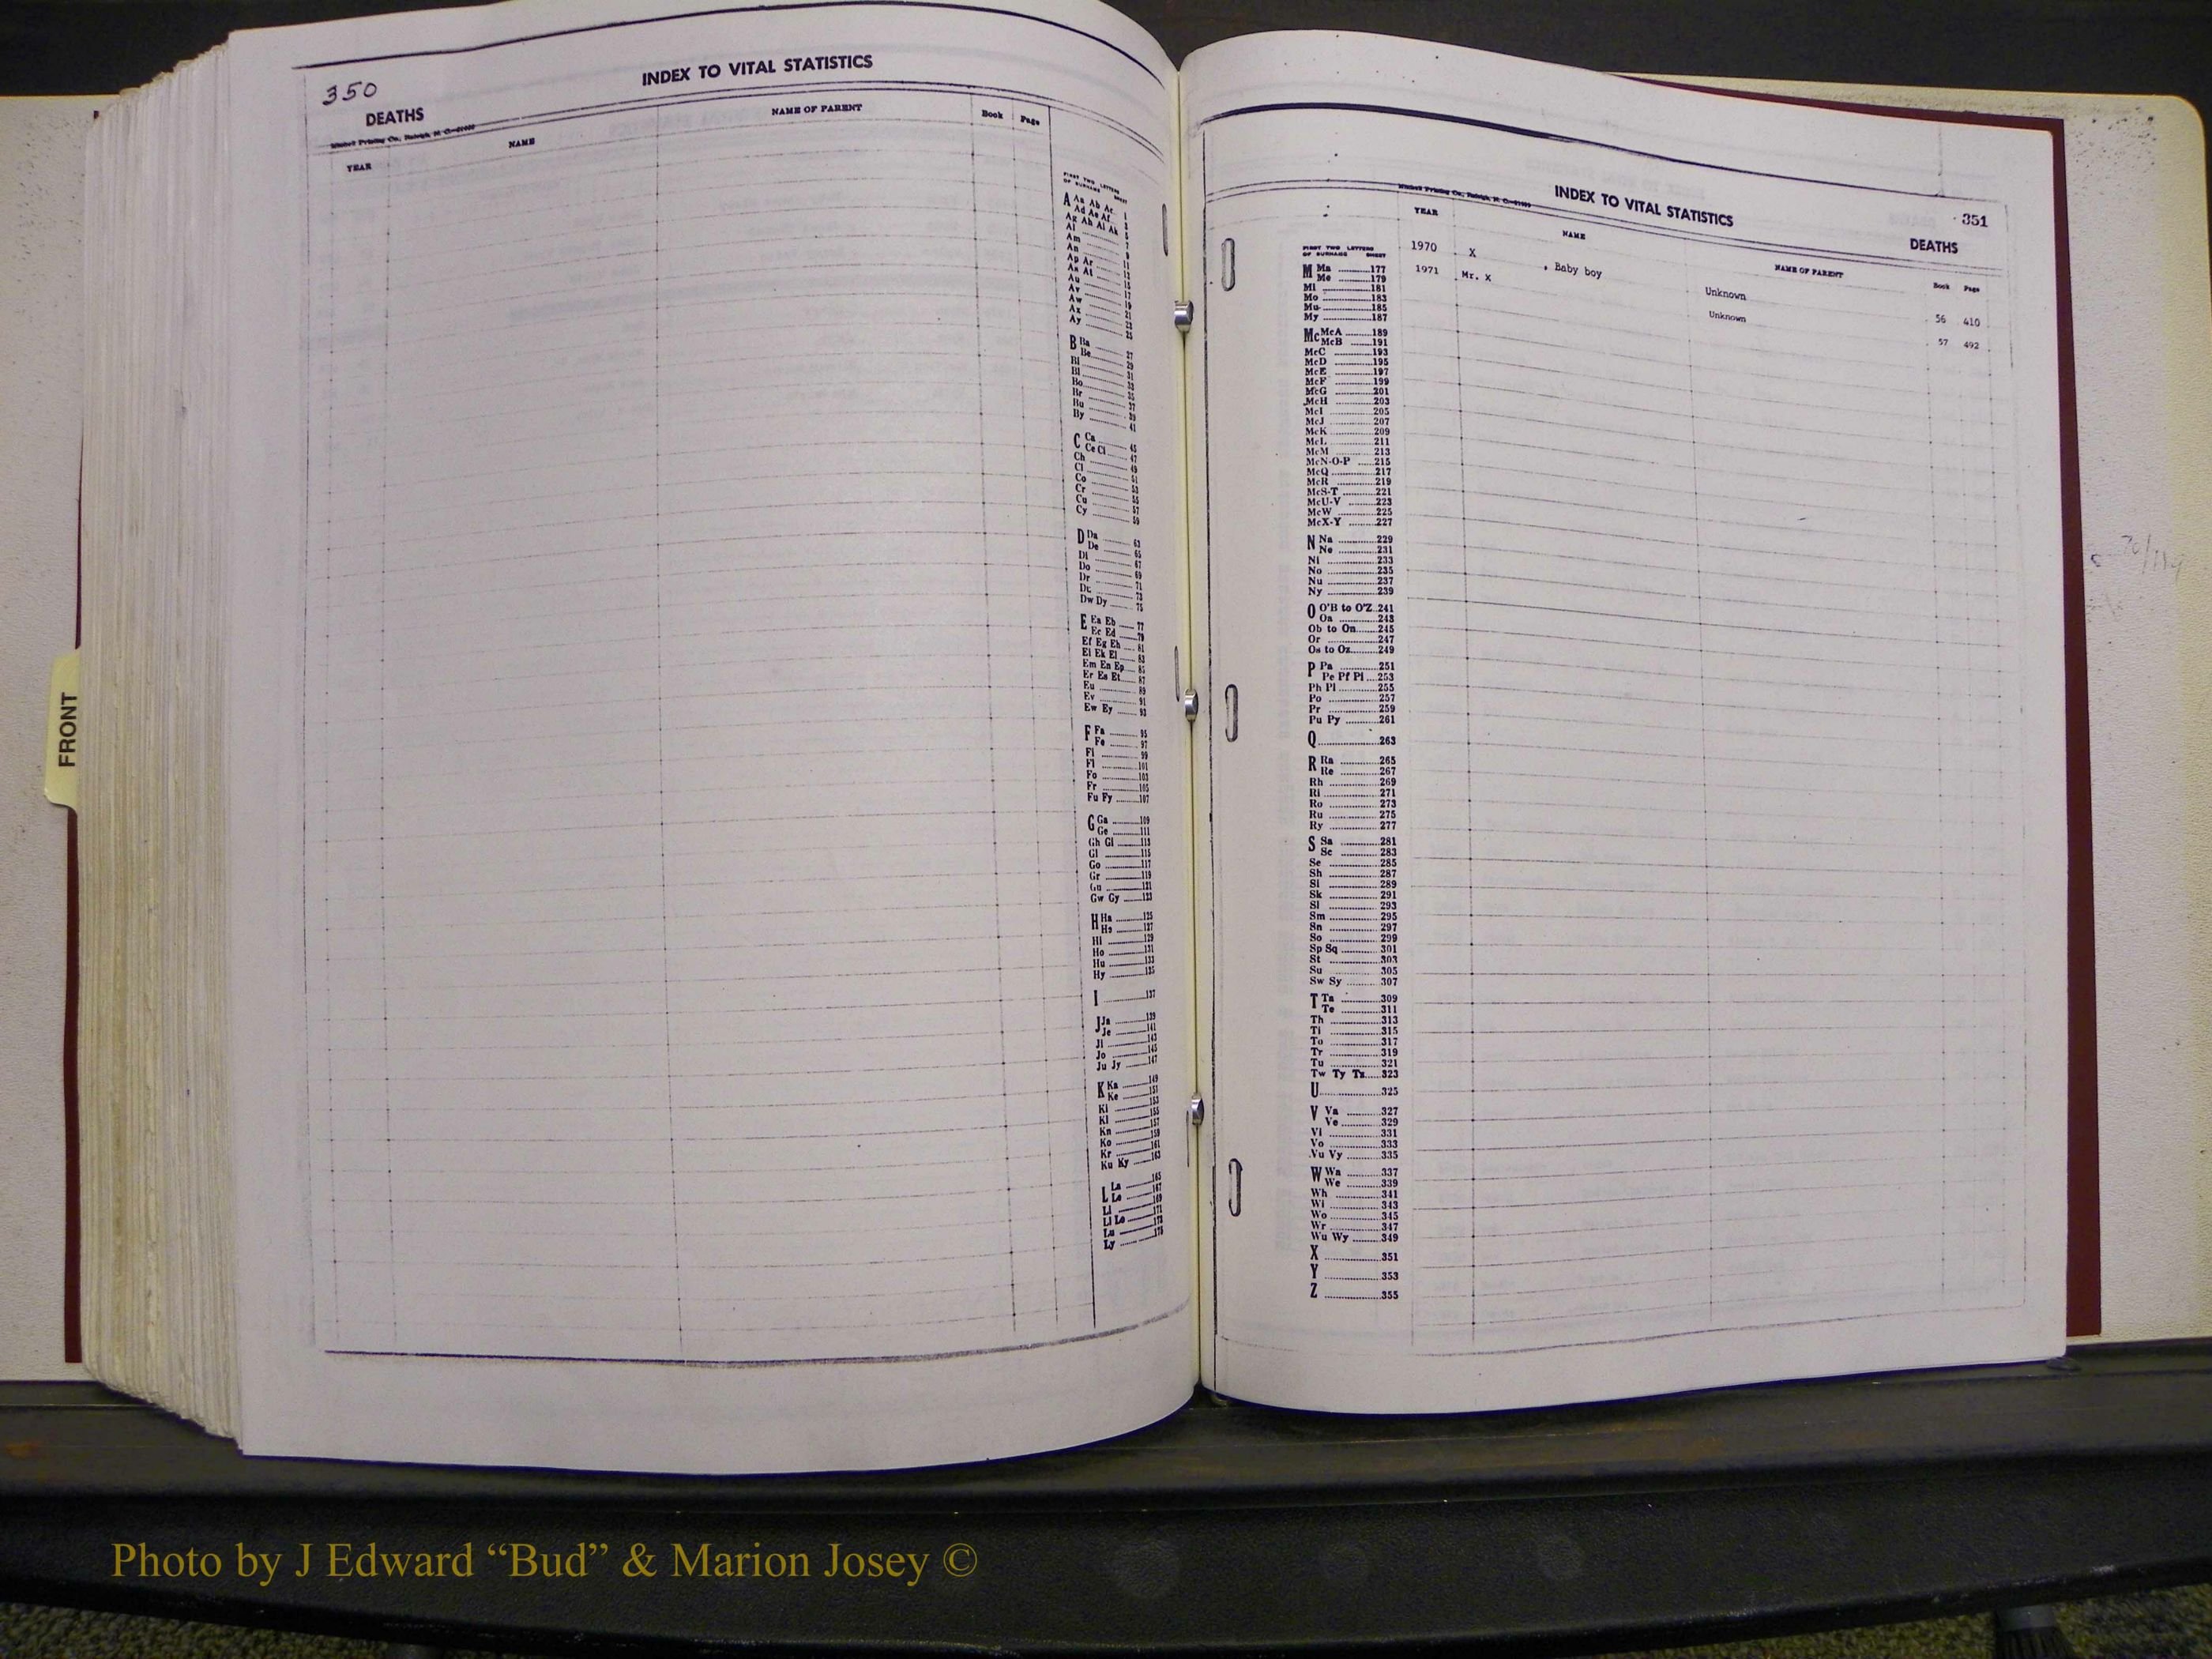 350
INDEX TO VITAL STATISTICS
DEATHS
YEAR NAME NAME OF PARENT Book Page
FIRST TWO LETTERS
OF SURNAME SHEET
A Aa Ab Ac
Ad Ae Af
Ag Ah Ai Ak
Al
Am
An
Ap Ar
As At
Au
Av
Aw
Ax
Ay
B Ba 27
Be 29
Bi 31
Bl 33
Bo 35
Br 37
Bu 39
By 41
C Ca 45
Ce Ci 47
Ch 49
Cl 51
Co 53
Cr 55
Cu 57
Cy 59
D Da 63
De 65
Di 67
Do 69
Dr 71
Du 73
Dw Dy 75
E Ea Eb 77
Ec Ed 79
Ef Eg Eh 81
Ei Ek El 83
Em En Ep 85
Er Es Et 87
Eu 89
Ev 91
Ew Ey 93
F Fa 95
Fe 97
Fi 99
Fl 101
Fo 103
Fr 105
Fu Fy 107
G Ga 109
Ge 111
Gh Gi 113
Gl 115
Go 117
Gr 119
Gu 121
Gw Gy 123
H Ha 125
He 127
Hi 129
Ho 131
Hu 133
Hy 135
I 137
J Ja 139
Je 141
Ji 143
Jo 145
Ju Jy 147
K Ka 149
Ke 151
Ki 153
Kl 155
Kn 157
Ko 159
Kr 161
Ku Ky 163
L La 165
Le 167
Li 169
Ll Lo
Lu
Ly 175
FRONT
351
INDEX TO VITAL STATISTICS
DEATHS
YEAR NAME NAME OF PARENT Book Page
1970 X , Baby boy Unknown 56 410
1971 Mr. X Unknown 57 492
FIRST TWO LETTERS
OF SURNAME SHEET
M Ma 177
Me 179
Mi 181
Mo 183
Mu 185
My 187
Mc McA 189
McB 191
McC 193
McD 195
McE 197
McF 199
McG 201
McH 203
McI 205
McJ 207
McK 209
McL 211
McM 213
McN-O-P 215
McQ 217
McR 219
McS-T 221
McU-V 223
McW 225
McX-Y 227
N Na 229
Ne 231
Ni 233
No 235
Nu 237
Ny 239
O O'B to O'Z 241
Oa 243
Ob to On 245
Or 247
Os to Oz 249
P Pa 251
Pe Pf Pi 253
Ph Pl 255
Po 257
Pr 259
Pu Py 261
Q 263
R Ra 265
Re 267
Rh 269
Ri 271
Ro 273
Ru 275
Ry 277
S Sa 281
Sc 283
Se 285
Sh 287
Si 289
Sk 291
Sl 293
Sm 295
Sn 297
So 299
Sp Sq 301
St 303
Su 305
Sw Sy 307
T Ta 309
Te 311
Th 313
Ti 315
To 317
Tr 319
Tu 321
Tw Ty Tz 323
U 325
V Va 327
Ve 329
Vi 331
Vo 333
Vu Vy 335
W Wa 337
We 339
Wh 341
Wi 343
Wo 345
Wr 347
Wu Wy 349
X 351
Y 353
Z 355
Photo by J Edward “Bud” & Marion Josey ©